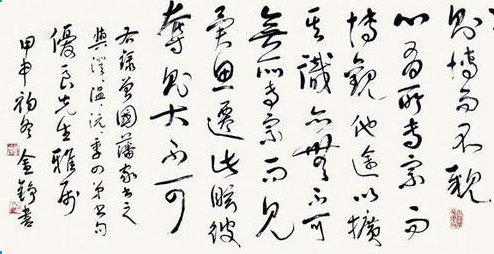 則博而不
心有所專宗而
博觀他途以擴
其識亦無不可
無所專宗而見
異思遷此眩彼
奪則大不可
右錄曾國藩家書之
與澄溫沅季四弟書句
優良先生雅屬
甲申初冬金錚書